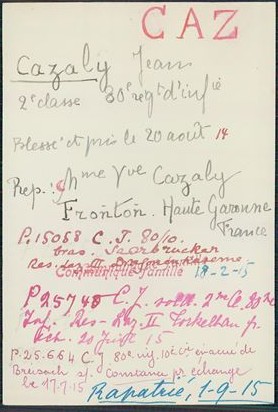 CAZ
Cazaly Jean
2e classe 80e régt d'infie
Blessé et pris le 20 août 14
Rep: Mme Vve Cazaly
Fronton. Haute Garonne
France
P.15058 C.I. 80/10.
Saarbrucken
Res. Laz. III
Communiqué famille 18-2-15
P25748 C.I. sold. 2me Cie
Inf. Res-Laz. II
20 Juft 15
P.25.664 C.I. 80e
Breisach Constanz pr échange
le 17.7.15
Rapatrié, 1-9-15